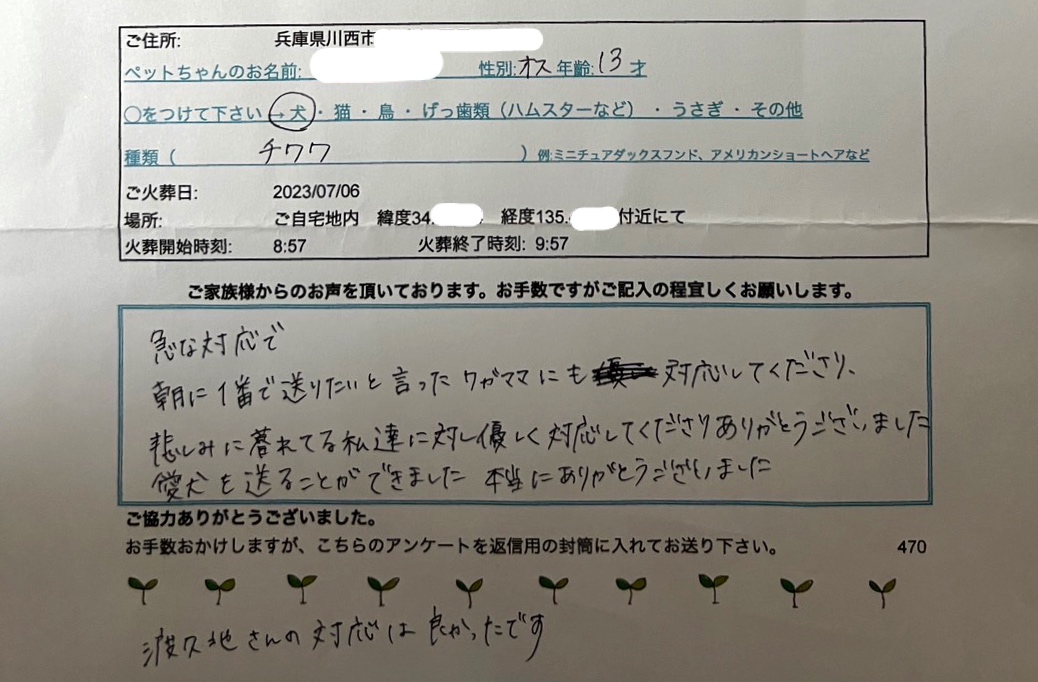 ご住所: 兵庫県川西市
ペットちゃんのお名前: 性別:オス 年齢:13才
〇をつけて下さい→犬・猫・鳥・げっ歯類（ハムスターなど）・うさぎ・その他
種類（ チワワ ）例:ミニチュアダックスフンド、アメリカンショートヘアなど
ご火葬日: 2023/07/06
場所: ご自宅地内 緯度34. 経度135. 付近にて
火葬開始時刻: 8:57 火葬終了時刻: 9:57
ご家族様からのお声を頂いております。お手数ですがご記入の程宜しくお願いします。
急な対応で
朝に1番で送りたいと言ったワガママにも 対応してくださり、
悲しみに暮れてる私達に対し優しく対応してくださりありがとうございました
愛犬を送ることができました 本当にありがとうございました
ご協力ありがとうございました。
お手数おかけしますが、こちらのアンケートを返信用の封筒に入れてお送り下さい。 470
渡久地さんの対応は良かったです